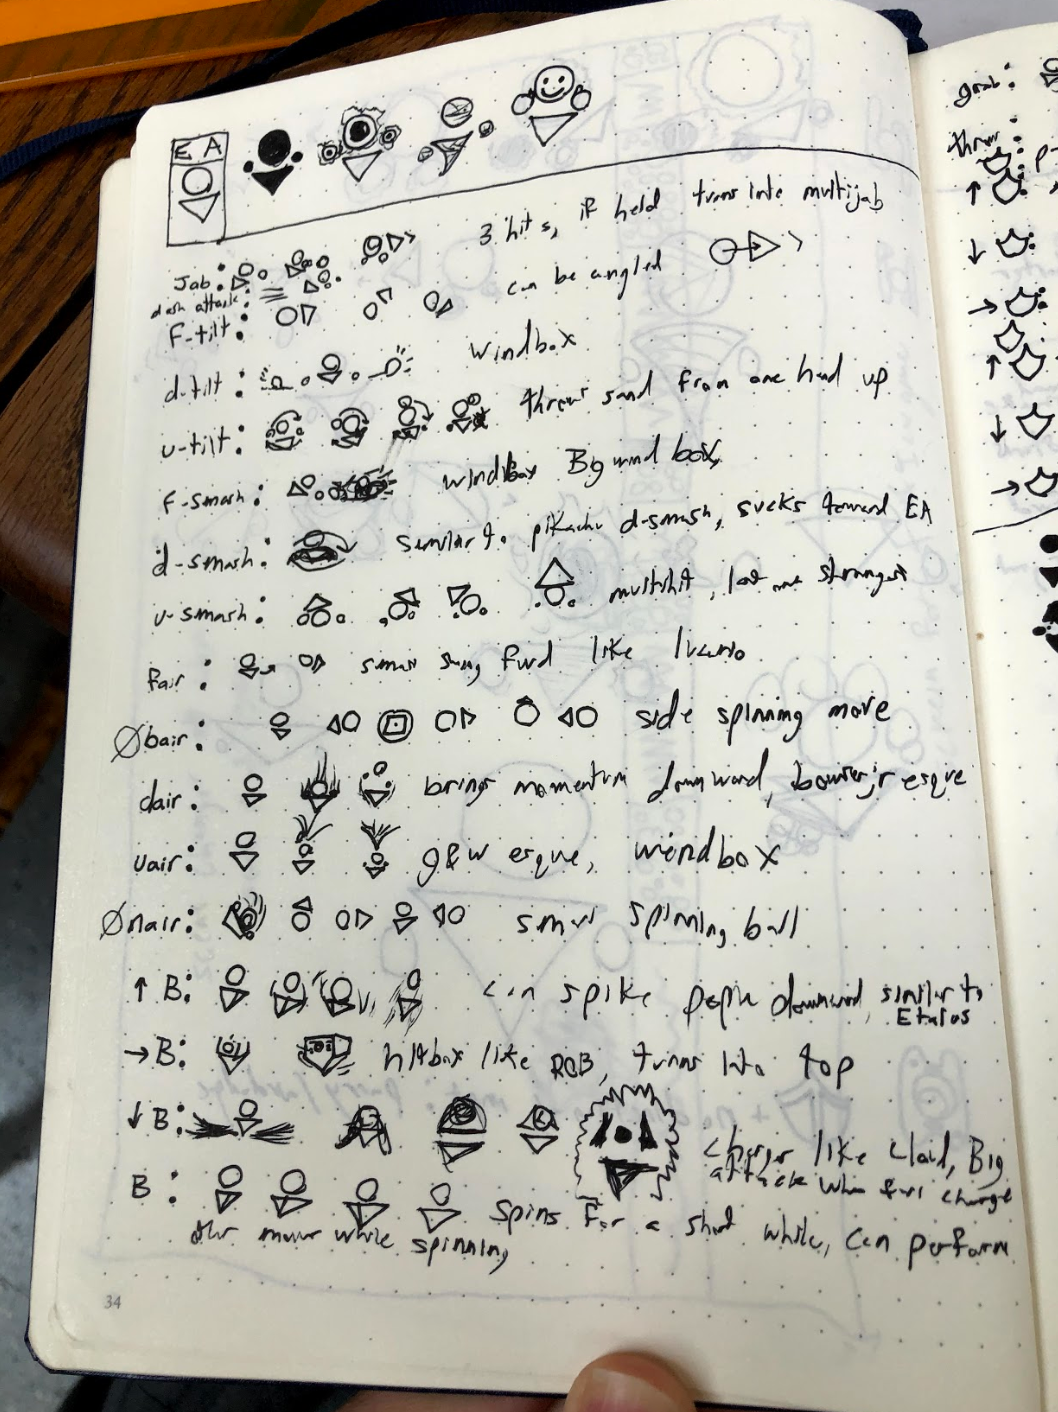 EA
Jab: 3 hits, if held turns into multijab
dash attack:
F-tilt: can be angled
d-tilt: windbox
u-tilt: throws sand from one hand up
F-smash: windbox Big wind box
d-smash: similar to pikachu d-smash, sucks toward EA
u-smash: multihit, last one strongest
fair: small swing fwd like lucario
Øbair: side spinning move
dair: brings momentum downward, bowser jr esque
uair: g&w esque, windbox
Ønair: small spinning ball
↑ B: can spike people downward, similar to
Etalus
→ B: hitbox like ROB, turns into top
↓ B: charges like Cloud, Big
attack when full charge
B: spins for a short while, can perform
other moves while spinning
34
grab:
throw:
↑
↓
→
↑
↓
→